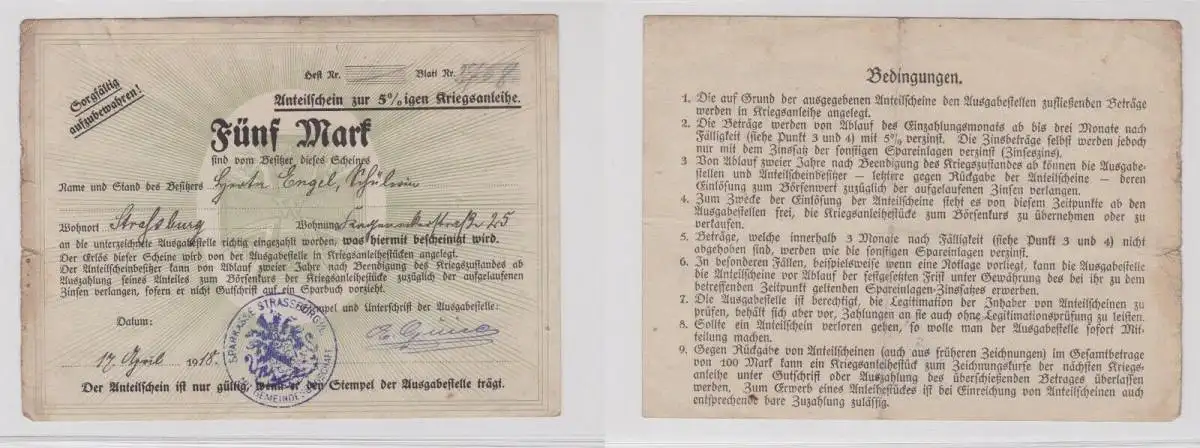 Sorgfältig
aufzubewahren!
Heft Nr. Blatt Nr.
Anteilschein zur 5% igen Kriegsanleihe.
Fünf Mark
sind vom Besitzer dieses Scheines
Name und Stand des Besitzers Herta Engel, Schülerin
Wohnort Straßburg Wohnung 25
an die unterzeichnete Ausgabestelle richtig eingezahlt worden, was hiermit bescheinigt wird.
Der Erlös dieser Scheine wird von der Ausgabestelle in Kriegsanleihestücken angelegt.
Der Anteilscheinbesitzer kann von Ablauf zweier Jahre nach Beendigung des Kriegszustandes ab
Auszahlung seines Anteiles zum Börsenkurs der Kriegsanleihe zuzüglich der aufgelaufenen
Zinsen verlangen, sofern er nicht Gutschrift auf ein Sparbuch vorzieht.
Stempel und Unterschrift der Ausgabestelle:
Datum:
17. April 1918.
SPARKASSE STRASSBURG
GEMEINDE
Der Anteilschein ist nur gültig, wenn er den Stempel der Ausgabestelle trägt.
Bedingungen.
1. Die auf Grund der ausgegebenen Anteilscheine den Ausgabestellen zufließenden Beträge
werden in Kriegsanleihe angelegt.
2. Die Beträge werden von Ablauf des Einzahlungsmonats ab bis drei Monate nach
Fälligkeit (siehe Punkt 3 und 4) mit 5% verzinst. Die Zinsbeträge selbst werden jedoch
nur mit dem Zinssatz der sonstigen Spareinlagen verzinst (Zinseszins).
3 Von Ablauf zweier Jahre nach Beendigung des Kriegszustandes ab können die Ausgabe-
stellen und Anteilscheinbesitzer — letztere gegen Rückgabe der Anteilscheine — deren
Einlösung zum Börsenwert zuzüglich der aufgelaufenen Zinsen verlangen.
4. Zum Zwecke der Einlösung der Anteilscheine steht es von diesem Zeitpunkte ab den
Ausgabestellen frei, die Kriegsanleihstücke zum Börsenkurs zu übernehmen oder zu
verkaufen.
5. Beträge, welche innerhalb 3 Monate nach Fälligkeit (siehe Punkt 3 und 4) nicht
abgehoben sind, werden wie die sonstigen Spareinlagen verzinst.
6. In besonderen Fällen, beispielsweise wenn eine Notlage vorliegt, kann die Ausgabestelle
die Anteilscheine vor Ablauf der festgesetzten Frist unter Gewährung des bei ihr zu dem
betreffenden Zeitpunkt geltenden Spareinlagen-Zinssatzes erwerben.
7. Die Ausgabestelle ist berechtigt, die Legitimation der Inhaber von Anteilscheinen zu
prüfen, behält sich aber vor, Zahlungen an sie auch ohne Legitimationsprüfung zu leisten.
8. Sollte ein Anteilschein verloren gehen, so wolle man der Ausgabestelle sofort Mit-
teilung machen.
9. Gegen Rückgabe von Anteilscheinen (auch aus früheren Zeichnungen) im Gesamtbetrage
von 100 Mark kann ein Kriegsanleihestück zum Zeichnungskurse der nächsten Kriegs-
anleihe unter Gutschrift oder Auszahlung des überschießenden Betrages überlassen
werden. Zum Erwerb eines Anleihestückes ist bei Einreichung von Anteilscheinen auch
entsprechende bare Zuzahlung zulässig.